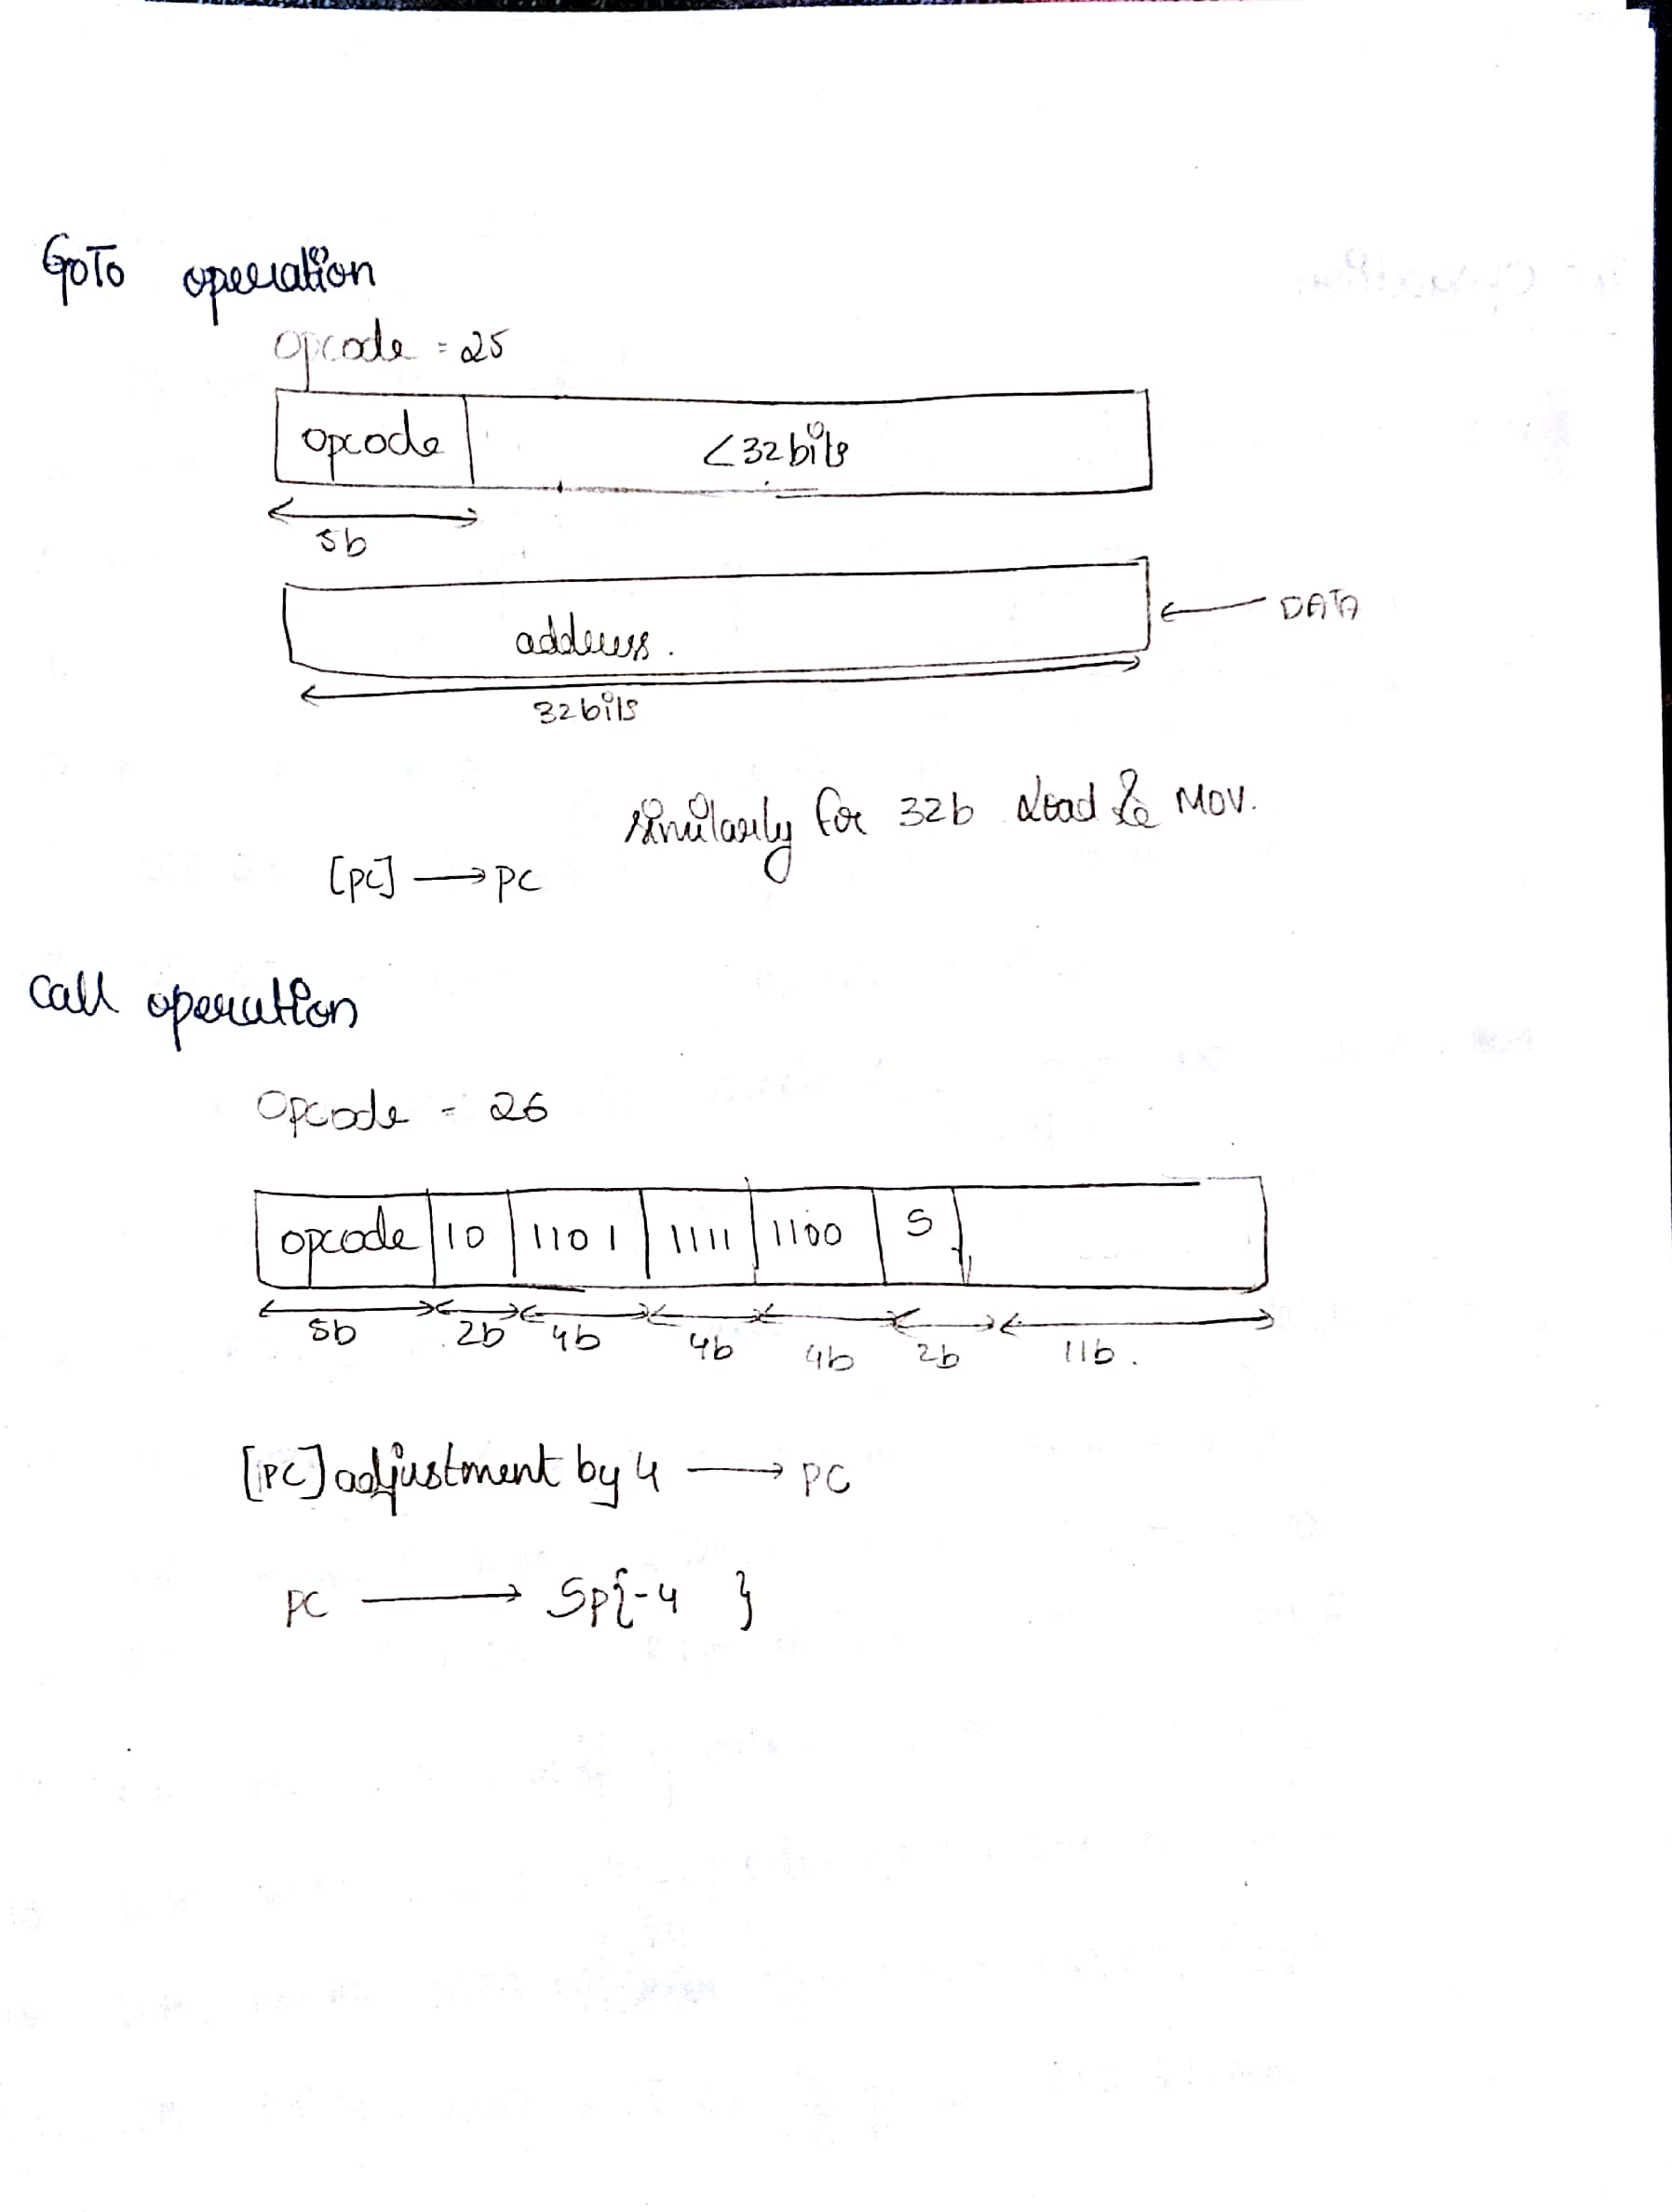 GoTo operation
opcode = 25
opcode <32bits
5b
address.
← DATA
32bits
similarly for 32b Load & MOV.
[PC] → PC
Call operation
Opcode = 26
opcode 10 1101 1111 1100 S
5b 2b 4b 4b 4b 2b 11b.
[PC] adjustment by 4 → PC
PC → Sp{-4 }